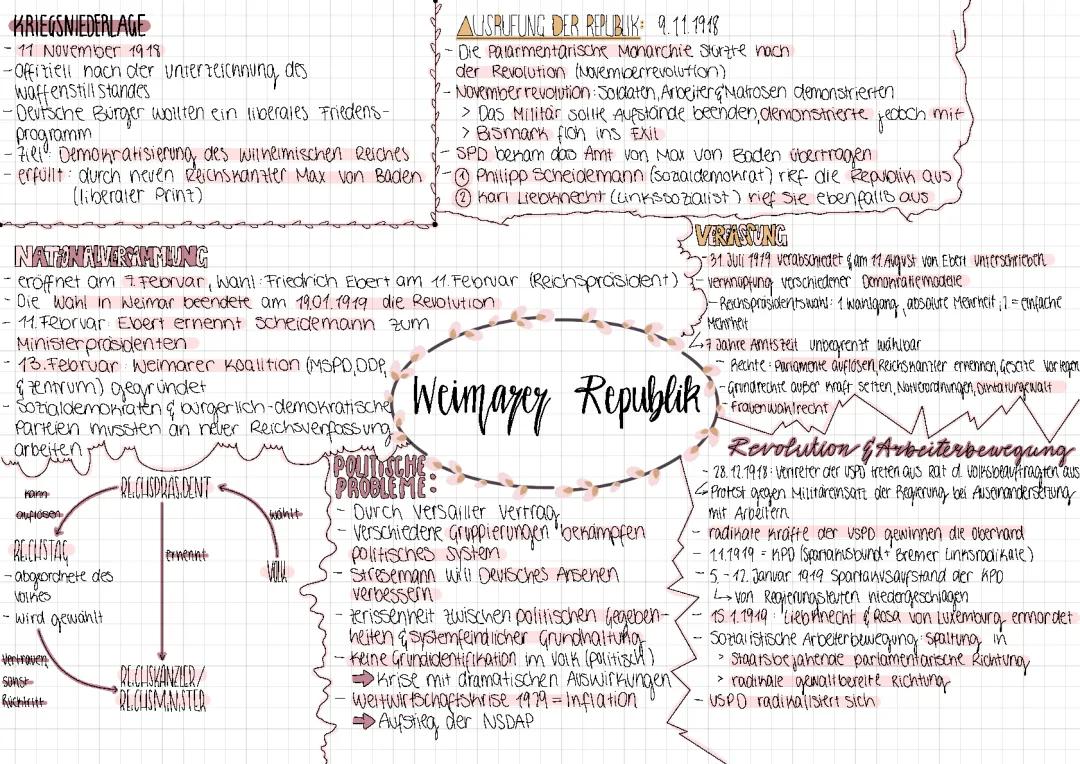 KRIEGSNIEDERLAGE
- 11 November 1918
- Offiziell nach der Unterzeichnung des
Waffenstillstandes
- Deutsche Bürger wollten ein liberales Friedens-
programm
- Ziel: Demokratisierung des wilhelmischen Reiches
- erfüllt: durch neuen Reichskanzler Max von Baden
(liberaler Prinz)
AUSRUFUNG DER REPUBLIK: 9.11.1918
- Die Palarmentarische Monarchie stürzte nach
der Revolution (Novemberrevolution)
- Novemberrevolution: Soldaten, Arbeiter & Matrosen demonstrierten
> Das Militär sollte Aufstände beenden, demonstrierte jedoch mit
> Bismark floh ins Exil
- SPD bekam das Amt von Max von Baden übertragen
- ① Philipp Scheidemann (Sozialdemokrat) rief die Republik aus
② Karl Liebknecht (Linkssozialist) rief sie ebenfalls aus
NATIONALVERSAMMLUNG
- eröffnet am 7. Februar, Wahl: Friedrich Ebert am 11. Februar (Reichspräsident)
- Die Wahl in Weimar beendete am 19.01.1919 die Revolution
- 11. Februar: Ebert ernennt Scheidemann zum
Ministerpräsidenten
- 13. Februar: Weimarer Koalition (MSPD, DDP,
& Zentrum) gegründet
- Sozialdemokraten & bürgerlich-demokratische
Parteien mussten an neuer Reichsverfassung
arbeiten
VERFASSUNG
- 31. Juli 1919 verabschiedet & am 11 August von Ebert unterschrieben
- Verknüpfung verschiedener Demokratiemodelle
- Reichspräsidentswahl: 1 Wahlgang, absolute Mehrheit; 2 = einfache
Mehrheit
↳ 7 Jahre Amtszeit unbegrenzt wählbar
- Rechte: Parlamente auflösen, Reichskanzler ernennen, Gesetze vorlegen
- Grundrechte außer Kraft setzen, Notverordnungen, Diktaturgewalt
- Frauenwahlrecht
Weimarer Republik
REICHSPRÄSIDENT
kann
auflösen
wählt
REICHSTAG
- abgeordnete des
Volkes
- wird gewählt
ernennt
VOLK
Vertrauen
sonst
Rücktritt
REICHSKANZLER/
REICHSMINISTER
POLITISCHE
PROBLEME:
- Durch Versailler Vertrag
- Verschiedene Gruppierungen bekämpfen
politisches System
- Stresemann will Deutsches Ansehen
verbessern
- Zerissenheit zwischen politischen Gegeben-
heiten & systemfeindlicher Grundhaltung
- Keine Grundidentifikation im Volk (politisch)
➡ Krise mit dramatischen Auswirkungen
- Weltwirtschaftskrise 1929 = Inflation
➡ Aufstieg der NSDAP
Revolution & Arbeiterbewegung
- 28.12.1918: Vertreter der USPD treten aus Rat d. Volksbeauftragten aus
↳ Protest gegen Militäreinsatz der Regierung bei Auseinandersetzung
mit Arbeitern
- radikale Kräfte der USPD gewinnen die Oberhand
- 1.1.1919 = KPD (Spartakusbund + Bremer Linksradikale)
- 5. - 12. Januar 1919 Spartakusaufstand der KPD
↳ von Regierungsleuten niedergeschlagen
- 15.1.1919: Liebknecht & Rosa von Luxemburg ermordet
- Sozialistische Arbeiterbewegung: Spaltung in
> Staatsbejahende parlamentarische Richtung
> radikale gewaltbereite Richtung
- USPD radikalisiert sich